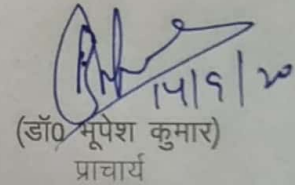 14/9/20
(डॉ0 भूपेश कुमार)
प्राचार्य